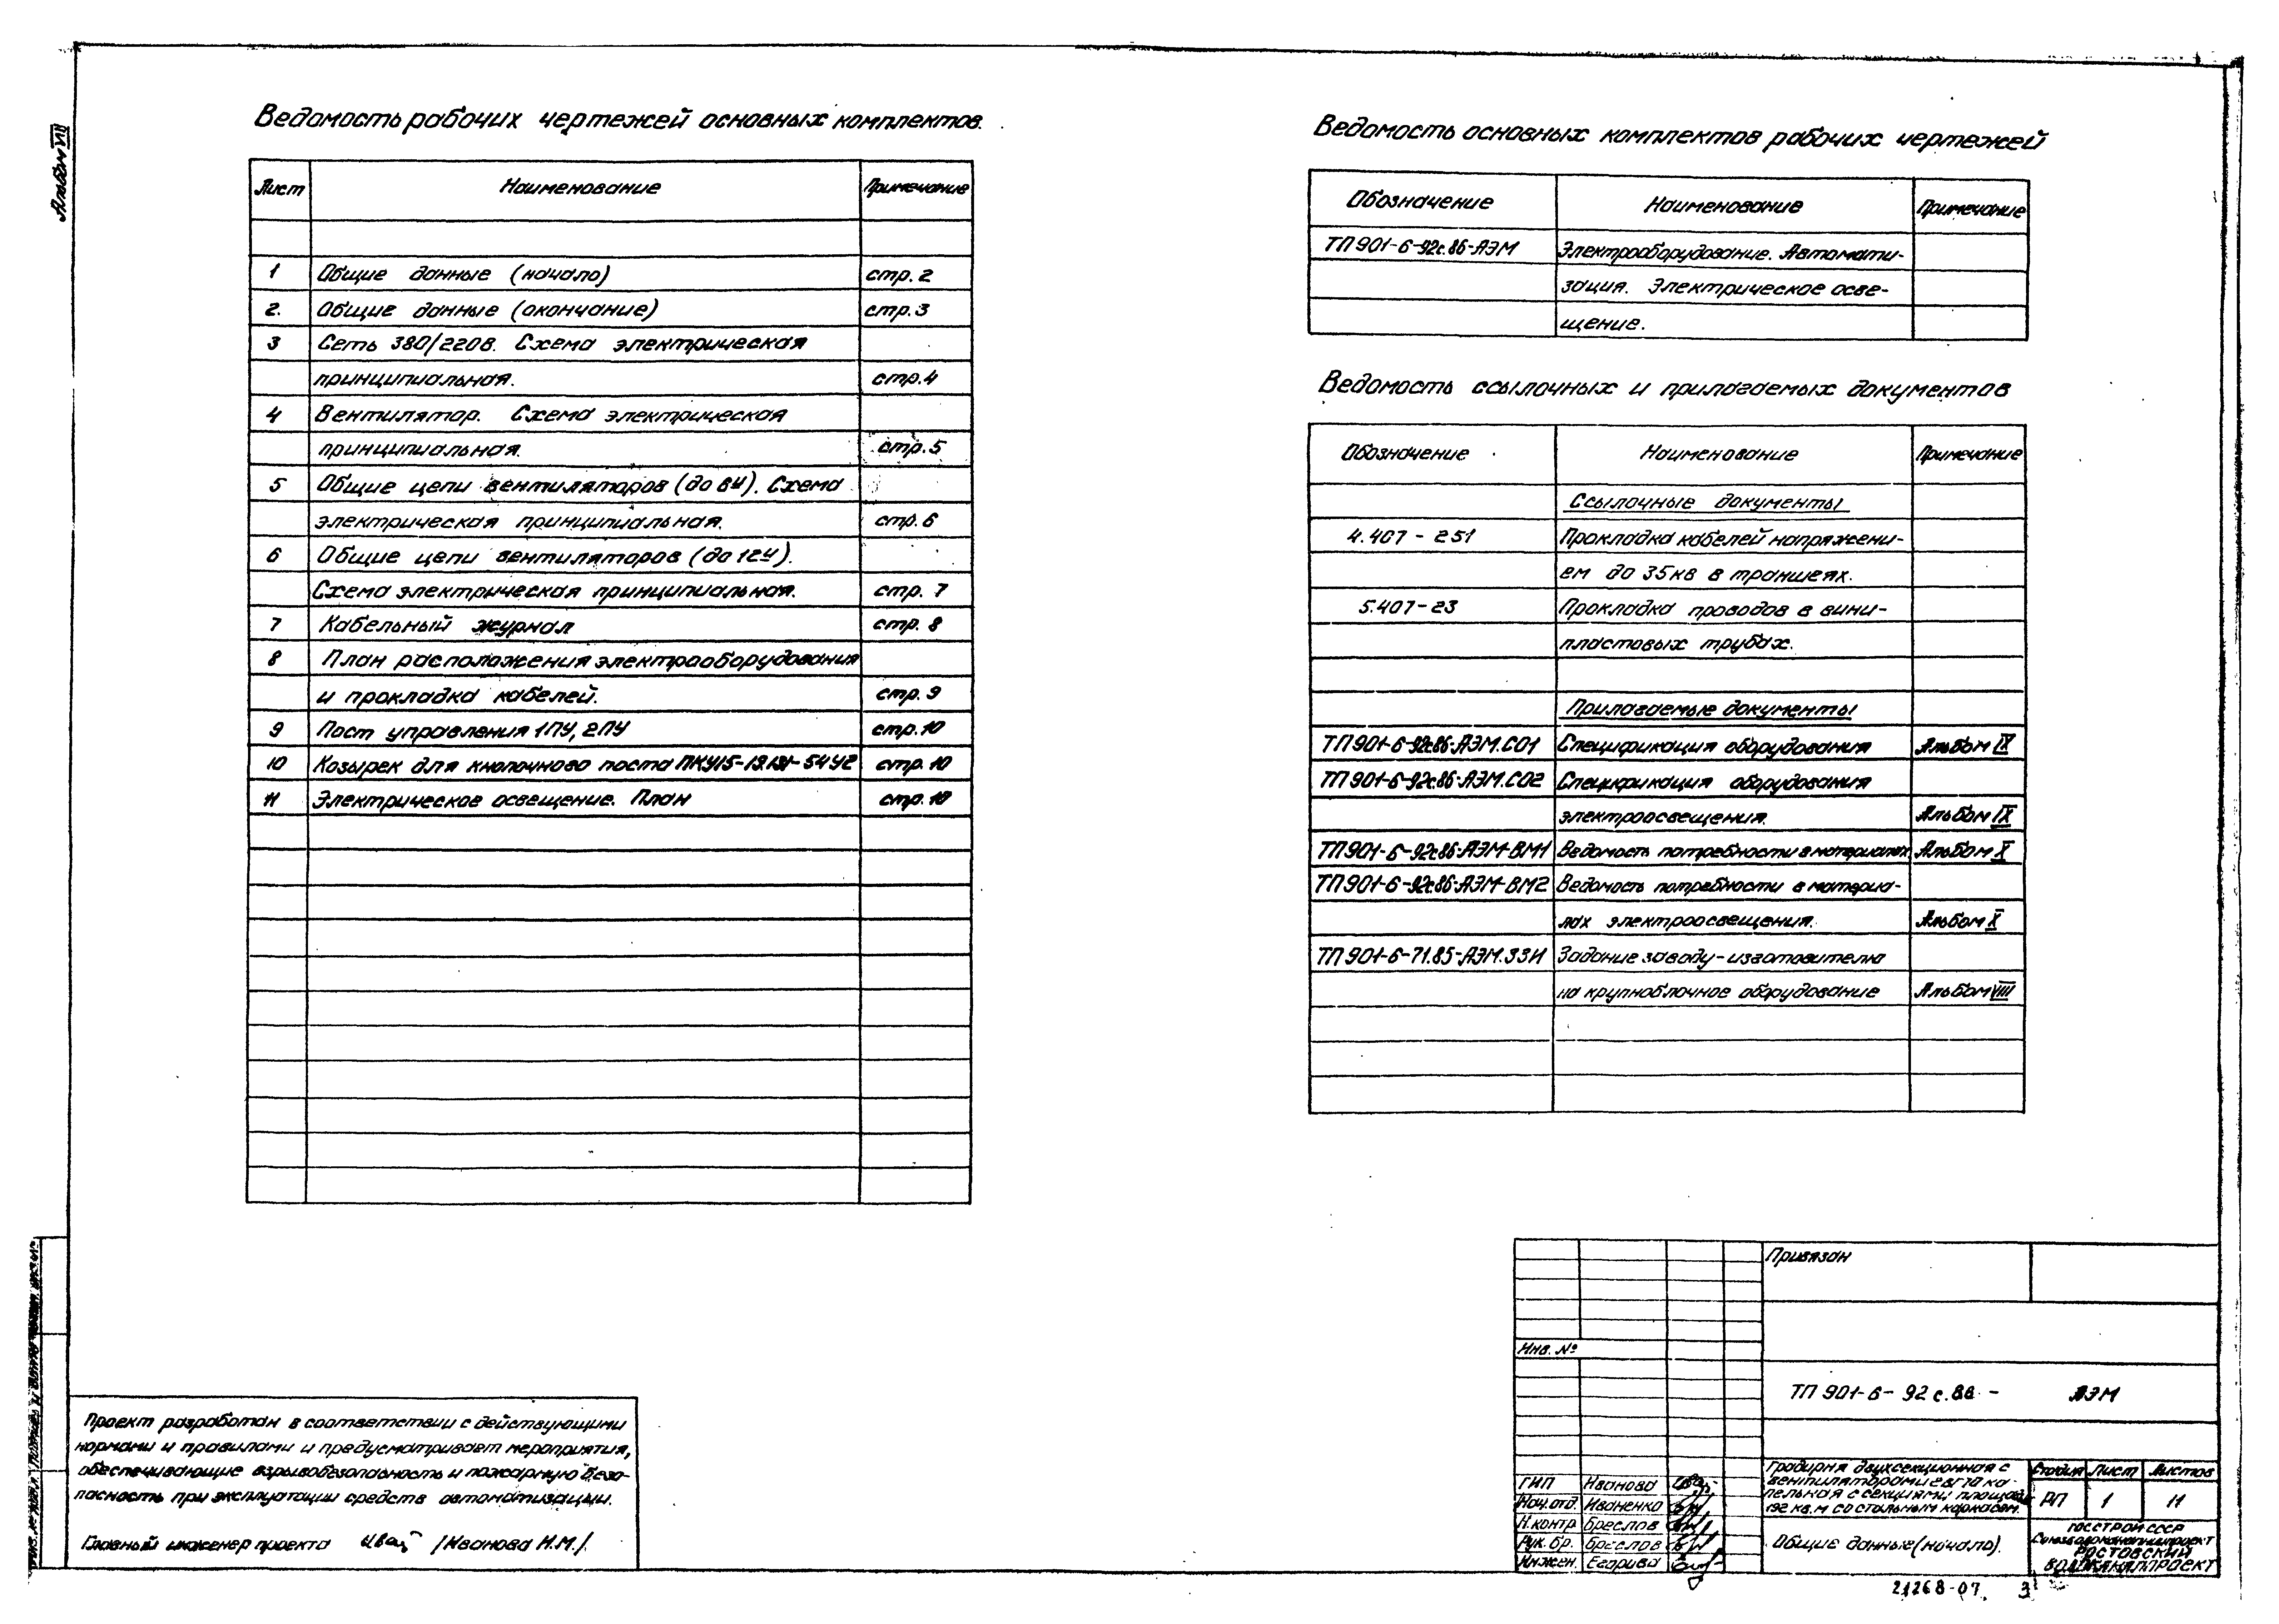 Альбом VII
Ведомость рабочих чертежей основных комплектов.
Лист Наименование Примечание
1 Общие данные (начало) стр. 2
2. Общие данные (окончание) стр. 3
3 Сеть 380/220в. Схема электрическая
принципиальная. стр. 4
4 Вентилятор. Схема электрическая
принципиальная. стр. 5
5 Общие цепи вентиляторов (до 8и). Схема
электрическая принципиальная. стр. 6
6 Общие цепи вентиляторов (до 12и).
Схема электрическая принципиальная. стр. 7
7 Кабельный журнал стр. 8
8 План расположения электрооборудования
и прокладка кабелей. стр. 9
9 Пост управления 1ПУ, 2ПУ стр. 10
10 Козырек для кнопочного поста ПКУ15-19.131-54У2 стр. 10
11 Электрическое освещение. План стр. 10
Ведомость основных комплектов рабочих чертежей
Обозначение Наименование Примечание
ТП 901-6-92с.86-АЭМ Электрооборудование. Автомати-
зация. Электрическое осве-
щение.
Ведомость ссылочных и прилагаемых документов
Обозначение Наименование Примечание
Ссылочные документы
4.407-251 Прокладка кабелей напряжени-
ем до 35кв в траншеях.
5.407-23 Прокладка проводов в вини-
пластовых трубах.
Прилагаемые документы
ТП 901-6-92с.86-АЭМ.СО1 Спецификация оборудования Альбом IX
ТП 901-6-92с.86-АЭМ.СО2 Спецификация оборудования
электроосвещения. Альбом IX
ТП 901-6-92с.86-АЭМ-ВМ1 Ведомость потребности в материалах. Альбом X
ТП 901-6-92с.86-АЭМ-ВМ2 Ведомость потребности в материа-
лах электроосвещения. Альбом X
ТП 901-6-71.85-АЭМ.ЗЗИ Задание заводу-изготовителю
на крупноблочное оборудование Альбом VIII
Проект разработан в соответствии с действующими
нормами и правилами и предусматривает мероприятия,
обеспечивающие взрывобезопасность и пожарную безо-
пасность при эксплуатации средств автоматизации.
Главный инженер проекта /Иванова Н.М./
Привязан
Инв. №
ТП 901-6-92с.86 - АЭМ
ГИП Иванова
Нач.отд. Иваненко
Н.контр. Бреслов
Рук.бр. Бреслов
Инжен. Егорива
Градирня двухсекционная с
вентиляторами 2ВГ70 ка-
пельная с секциями площадью
192 кв.м со стальным каркасом.
Стадия Лист Листов
РП 1 11
Общие данные (начало).
ГОССТРОЙ СССР
Союзводоканалниипроект
РОСТОВСКИЙ
ВОДОКАНАЛПРОЕКТ
21268-07 3